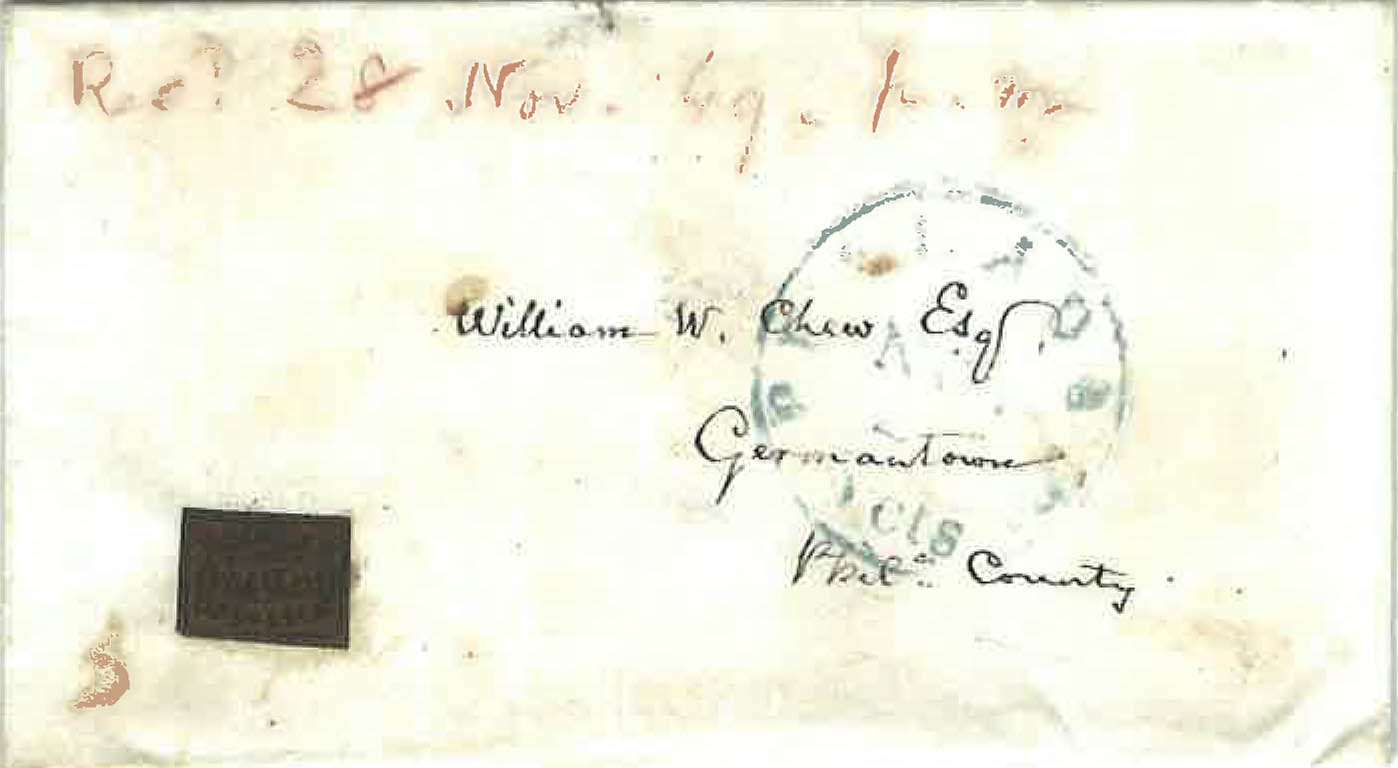 Recd 28 Nov. '49. p.m.
William W. Chew Esq.
Germantown
Phila. County
5
cts